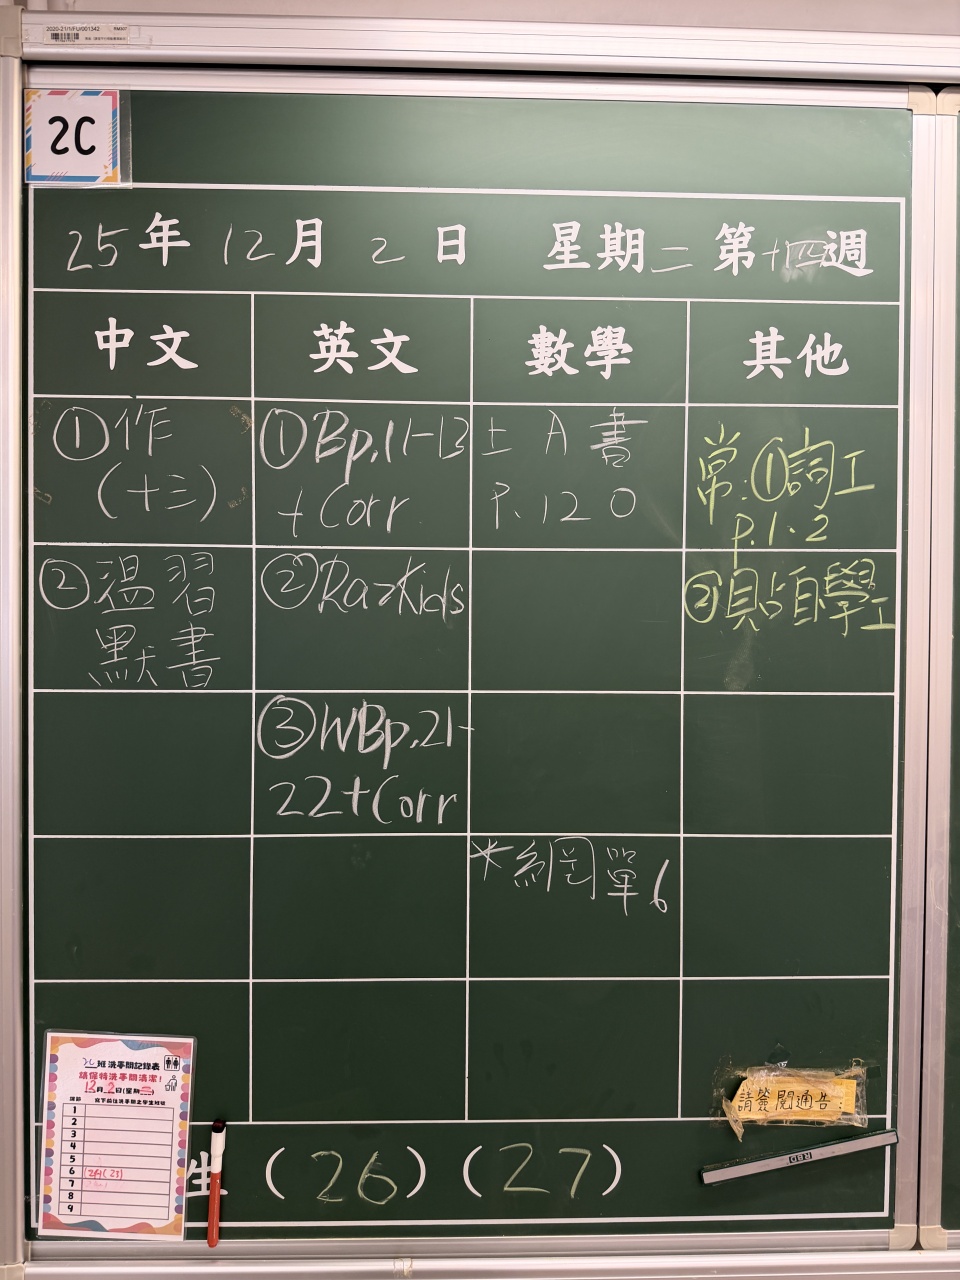 2020-21/1/FU/001342
2C
25年12月2日 星期二 第十四週
中文 英文 數學 其他
①作
(十三)
①Bp.11-13
+Corr
上A書
P.120
常:①詞工
p.1、2
②溫習
默書
②Raz-Kids
②貼自學工
③WBp.21-
22+Corr
*網單6
2C班洗手間記錄表
請保持洗手間清潔!
12月2日(星期二)
1
2
3
4
5
6
7
8
9
請簽閱通告!
生 (26)(27)